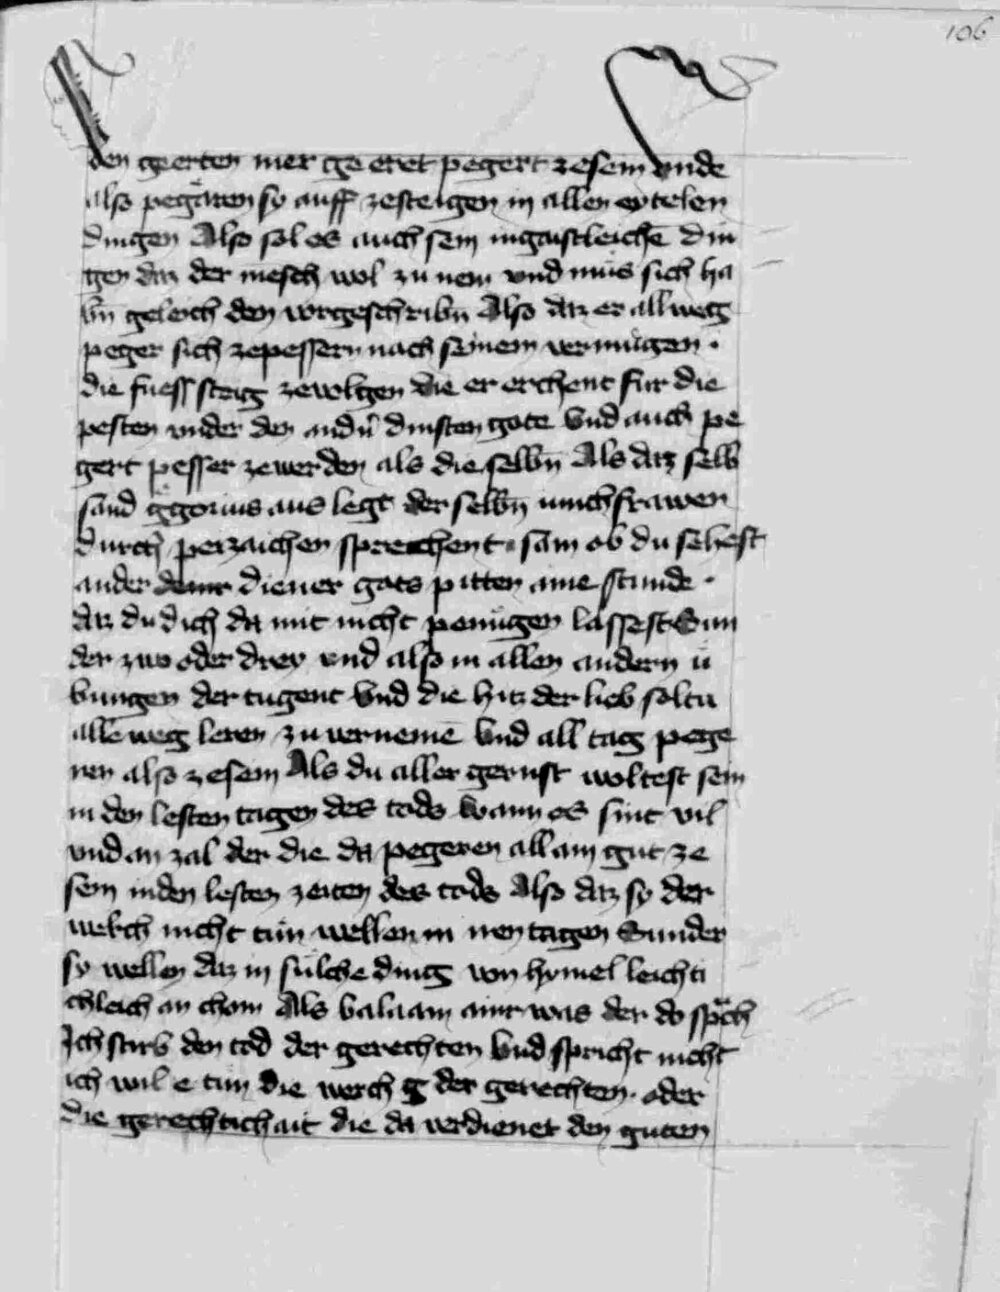 106
den geerten mer ge eret pegert zesein vnde
also pegaren sy auff zesteigen in allen eytelen
dingen Also sol es auch sein in gaistleichē din
gen daz der mesch wol zu nem vnd mus sich ha
bn̄ geleich den vorgeschribn̄ Also daz er allweg
peger sich zepessern nach seinem vermugen ·
die fuess steig zevolgen die er erchent fur die
pesten vnder den andn̄ dinsten gote Vnd auch pe
gert pesser zewerden als die selbn̄ Als daz selb
sand gͤgorius aus legt der selbn̄ iunchfrawen
durch perzaichen sprechent · sam ob du sehest
ander diener gots pitten aine stunde ·
daz du dich da mit nicht penugen lassest Sun
der zwo oder drey vnd also in allen andern ü
bungen der tugent Vnd die hitz der lieb soltu
alle weg leren zu vernemē Vnd all tag pege
ren also zesein Als du aller gernst woltest sein
in den lesten tagen des tods Wann es sint vil
vnd an zal der die da pegeren all ain gut ze
sein in den lesten zeiten des tods Also daz sy der
welch nicht tun wellen in iren tagen Sunder
sy wellen daz in sulche ding von hymel leichti
chleich an chom Als balaam ainr was der do sprach
Ich stirb den tod der gerechten Vnd spricht nicht
ich wil e tun die werch g der gerechten · oder
die gerechtichait die da verdienet den guten